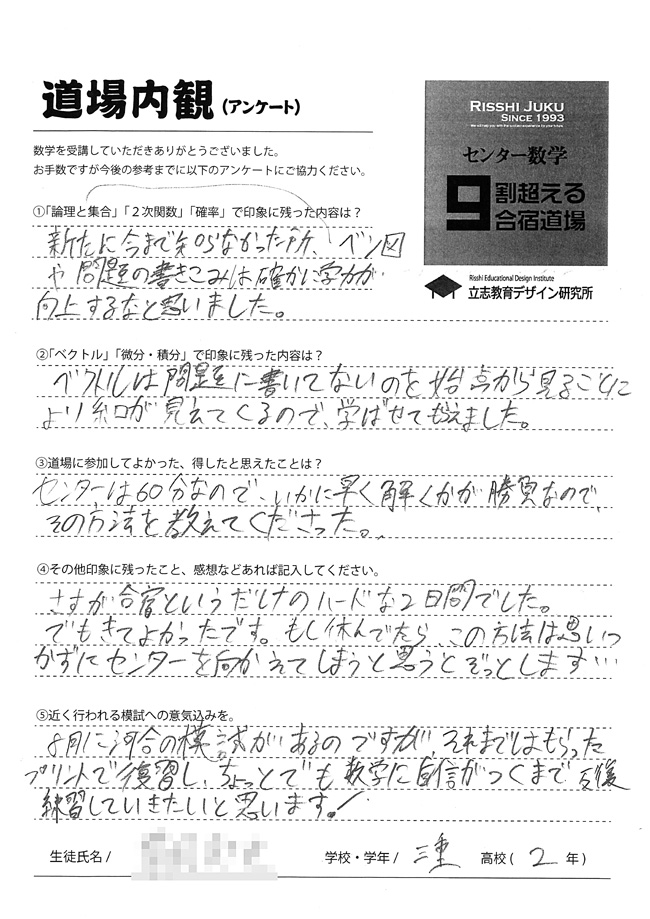 道場内観(アンケート)
RISSHI JUKU
SINCE 1993
センター数学
9割超える
合宿道場
Risshi Educational Design Institute
立志教育デザイン研究所
数学を受講していただきありがとうございました。
お手数ですが今後の参考までに以下のアンケートにご協力ください。
①「論理と集合」「２次関数」「確率」で印象に残った内容は？
新たに今まで知らなかった所、ベン図
や問題の書きこみは確かに学力が
向上するなと思いました。
②「ベクトル」「微分・積分」で印象に残った内容は？
ベクトルは問題に書いてないのを始点から見ることに
より糸口が見えてくるので、学ばせてもらえました。
③道場に参加してよかった、得したと思えたことは？
センターは60分なので、いかに早く解くかが勝負なので、
その方法を教えてくださった。
④その他印象に残ったこと、感想などあれば記入してください。
さすが合宿というだけのハードな2日間でした。
でもきてよかったです。もし休んでたら、この方法は思いつ
かずにセンターを向かえてしまうと思うとぞっとします…
⑤近く行われる模試への意気込みを。
8月に河合の模試があるのですが、それまではもらった
プリントで復習し、ちょっとでも数学に自信がつくまで反復
練習していきたいと思います!
生徒氏名 /
学校・学年 / 三重 高校( 2 年)